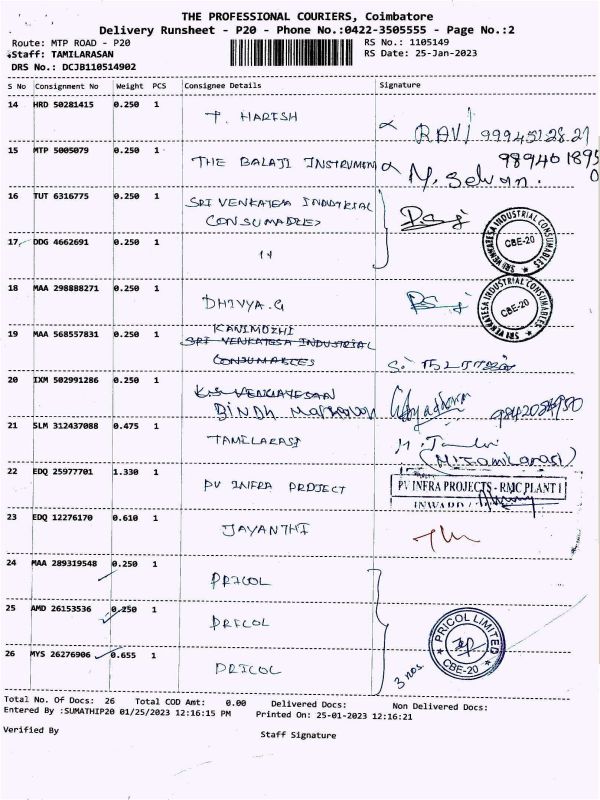 THE PROFESSIONAL COURIERS, Coimbatore
Delivery Runsheet - P20 - Phone No.:0422-3505555 - Page No.:2
Route: MTP ROAD - P20 RS No.: 1105149
Staff: TAMILARASAN RS Date: 25-Jan-2023
DRS No.: DCJB110514902
S No Consignment No Weight PCS Consignee Details Signature
14 HRD 50281415 0.250 1 T. HARISH RAVI
15 MTP 5005079 0.250 1 THE BALAJI INSTRUMEN M. Selvan.
16 TUT 6316775 0.250 1 SRI VENKATESA INDUSTRIAL
CONSUMABLES
SRI VENKATESA INDUSTRIAL CONSUMABLES
CBE-20
17 DDG 4662691 0.250 1 11
18 MAA 298888271 0.250 1 DHIVYA.G
SRI VENKATESA INDUSTRIAL CONSUMABLES
CBE-20
KANIMOZHI
19 MAA 568557831 0.250 1 SRI VENKATESA INDUSTRIAL
CONSUMABLES
20 IXM 502991286 0.250 1
BINDH
21 SLM 312437088 0.475 1 TAMILARASI
(M.Tamilarasi)
22 EDQ 25977701 1.330 1 PV INFRA PROJECT
PV INFRA PROJECTS - RMC PLANT I
INWARD
23 EDQ 12276170 0.610 1 JAYANTHI
24 MAA 289319548 0.250 1 PRICOL
25 AMD 26153536 0.250 1 PRICOL
PRICOL LIMITED
CBE-20
26 MYS 26276906 0.655 1 PRICOL 3 nos
Total No. Of Docs: 26 Total COD Amt: 0.00 Delivered Docs: Non Delivered Docs:
Entered By :SUMATHIP20 01/25/2023 12:16:15 PM Printed On: 25-01-2023 12:16:21
Verified By
Staff Signature